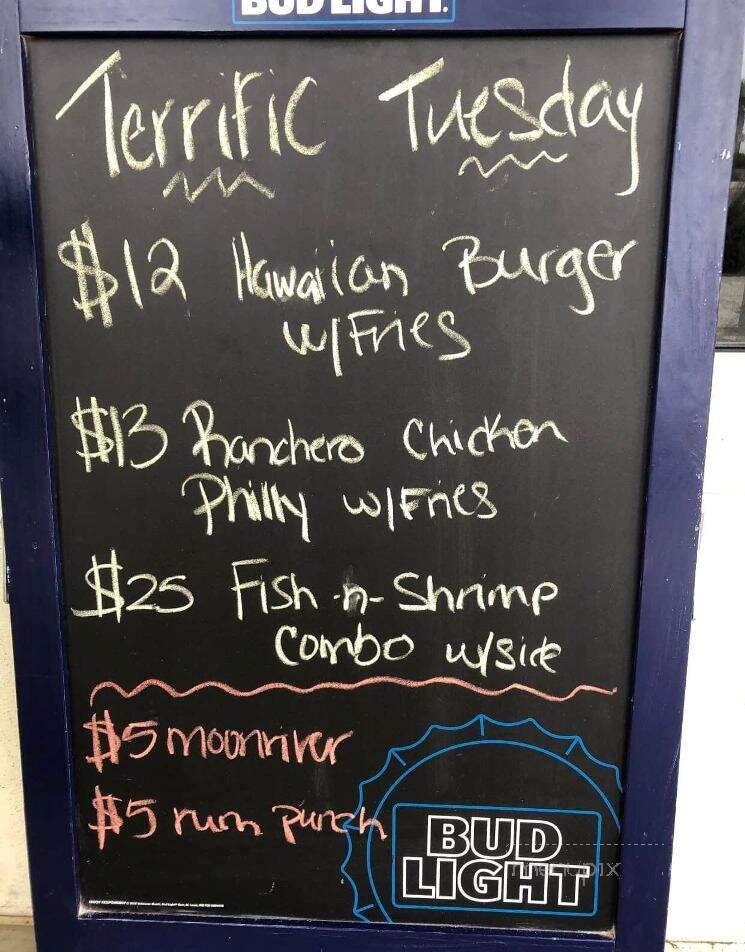 BUD LIGHT.
Terrific Tuesday
$12 Hawaiian Burger
w/Fries
$13 Ranchero Chicken
Philly w/Fries
$25 Fish-n-Shrimp
Combo w/side
$5 moonriver
$5 rum punch
BUD
LIGHT
menupix